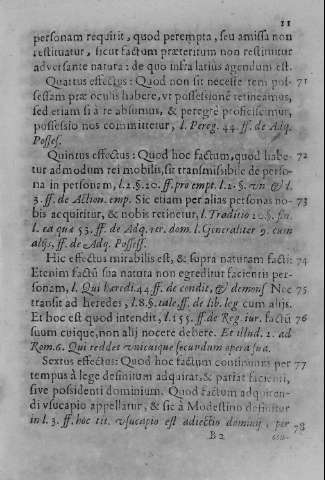 11
personam requirit, quod perempta, seu amissa non
restituatur, sicut factum præteritum non restituitur
adversante natura: de quo infra latius agendum est.
Quartus effectus: Quod non sit necesse rem pos- 71
sessam præ oculis habere, vt possessionē retineamus,
sed etiam si à re absumus, & peregrè proficiscimur,
possessio nos committetur, l. Pereg. 44. ff. de Adq.
Posses.
Quintus effectus: Quod hoc factum, quod habe- 72
tur ad modum rei mobilis, sit transmissibile de perso-
na in personam, l. 2. §. 20. ff. pro empt. l. 2. §. & l.
3. ff. de Action. emp. Sic etiam per alias personas no- 73
bis acquiritur, & nobis retinetur, l. Traditio 20. §. fin.
l. ea quæ 53. ff. de Adq. rer. dom. l. Generaliter 9. cum
alijs, ff. de Adq. Possess.
Hic effectus mirabilis est, & supra naturam facti: 74
Etenim factū sua natura non egreditur facientis per-
sonam, l. Qui hæredi 44. ff. de condit. & demonst. Nec 75
transit ad heredes, l. 8. §. tale. ff. de lib. leg. cum alijs.
Et hoc est quod intendit, l. 155. ff. de Reg. iur. factū 76
suum cuique, non alij nocere debere. Et illud 2. ad
Rom. 6. Qui reddet vnicuique secundum opera sua.
Sextus effectus: Quod hoc factum continuatū per 77
tempus à lege definitum adquirat, & pariat facienti,
sive possidenti dominium. Quod factum adquiren-
di vsucapio appellatur, & sic à Modestino definitur
in l. 3. ff. hoc tit. vsucapio est adiectio dominij, per 78
B 2 con-